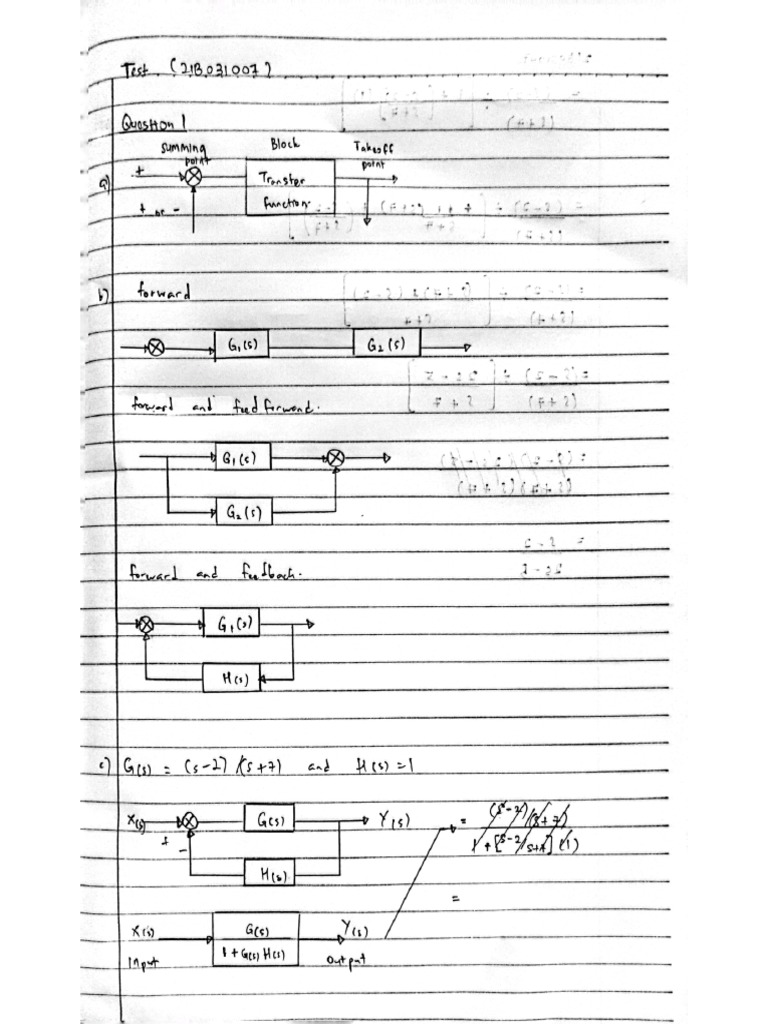 Test (21B031007)
Question 1
summing point
Block
Takeoff point
a)
+
Transfer function
+ or -
b) forward
G₁(s)
G₂(s)
forward and feed forward.
G₁(s)
G₂(s)
forward and feedback.
G₁(s)
H(s)
c) G(s) = (s-2)/(s+7) and H(s) = 1
X(s)
G(s)
Y(s)
+
-
H(s)
= (s-2)/(s+7)
1 + [s-2/s+7] (1)
=
X(s)
G(s)
Y(s)
Input
1 + G(s) H(s)
output